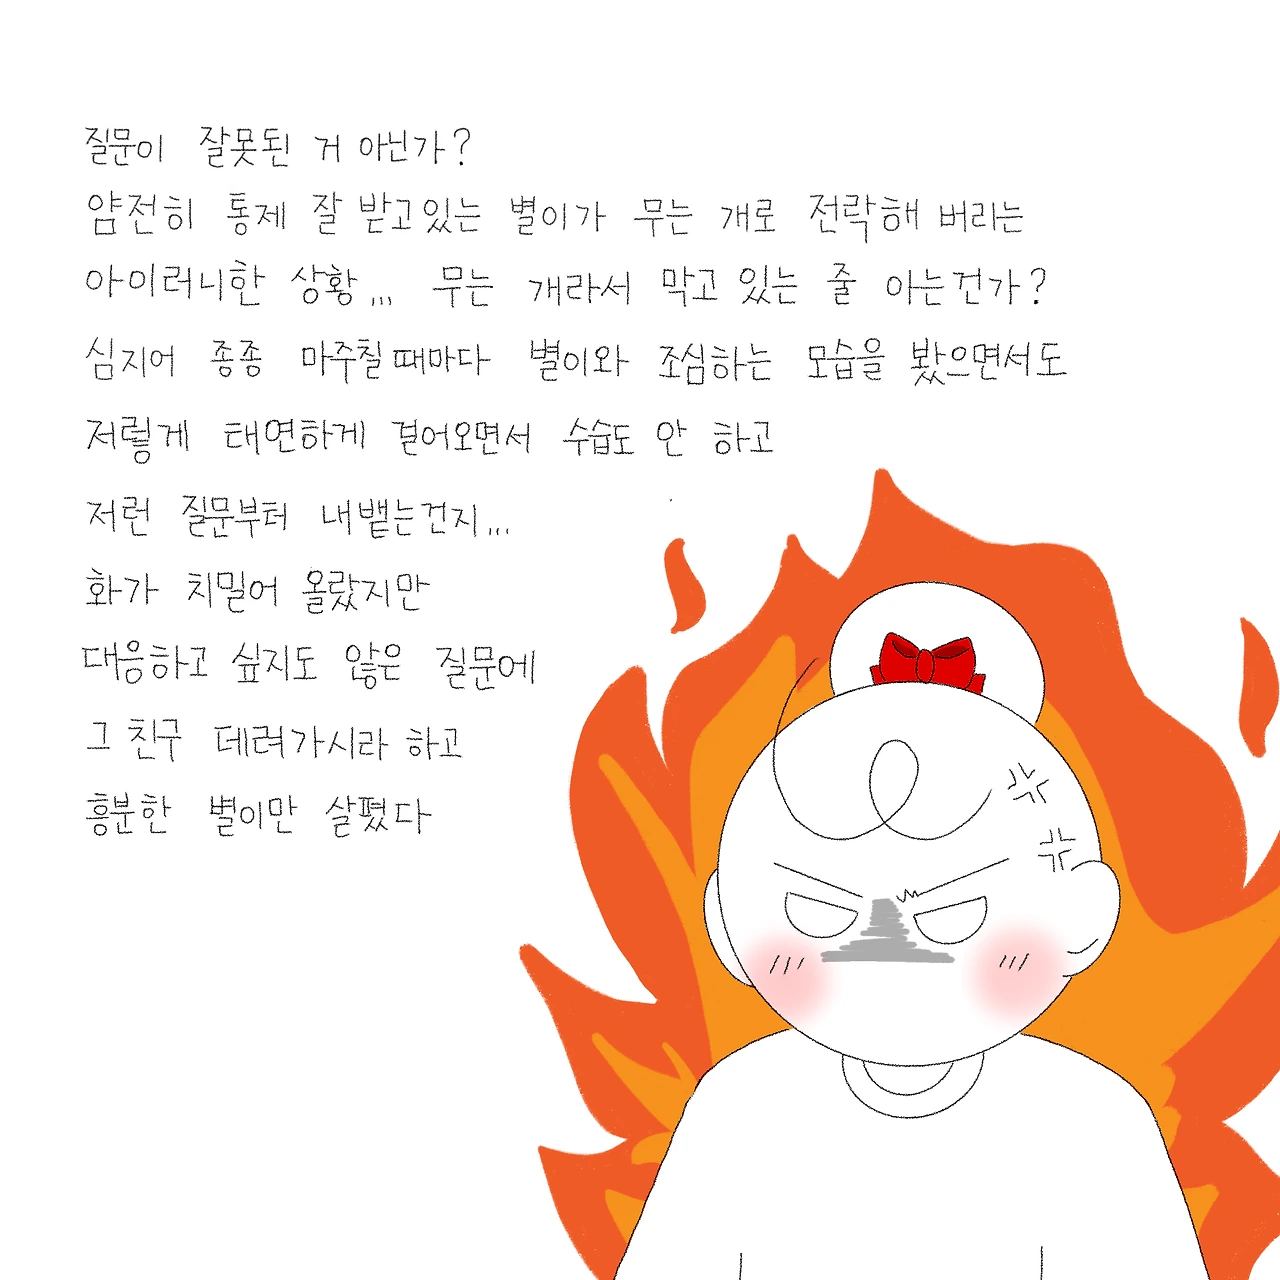 질문이 잘못된 거 아닌가?
얌전히 통제 잘 받고있는 별이가 무는 개로 전락해 버리는
아이러니한 상황... 무는 개라서 막고 있는 줄 아는건가?
심지어 종종 마주칠때마다 별이와 조심하는 모습을 봤으면서도
저렇게 태연하게 걸어오면서 수습도 안 하고
저런 질문부터 내뱉는건지...
화가 치밀어 올랐지만
대응하고 싶지도 않은 질문에
그 친구 데려가시라 하고
흥분한 별이만 살폈다